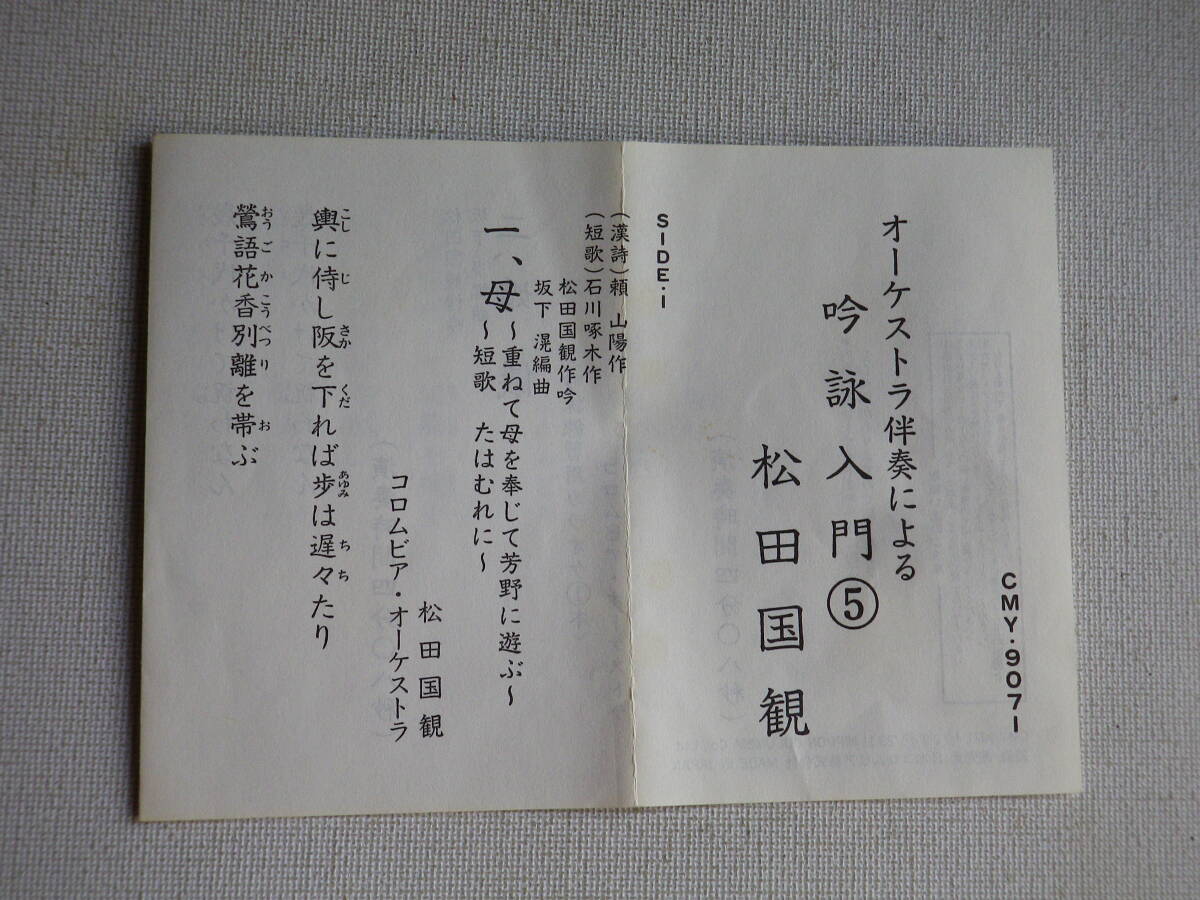 CMY・9071
オーケストラ伴奏による
吟詠入門⑤
松田国観
SIDE・1
(漢詩)頼 山陽作
(短歌)石川啄木作
松田国観作吟
坂下 滉編曲
一、母～重ねて母を奉じて芳野に遊ぶ～
～短歌 たはむれに～
松田国観
コロムビア・オーケストラ
輿に侍し阪を下れば歩は遅々たり
こし じ さか くだ あゆみ ち ち
鶯語花香別離を帯ぶ
おうご か こうべつ り お